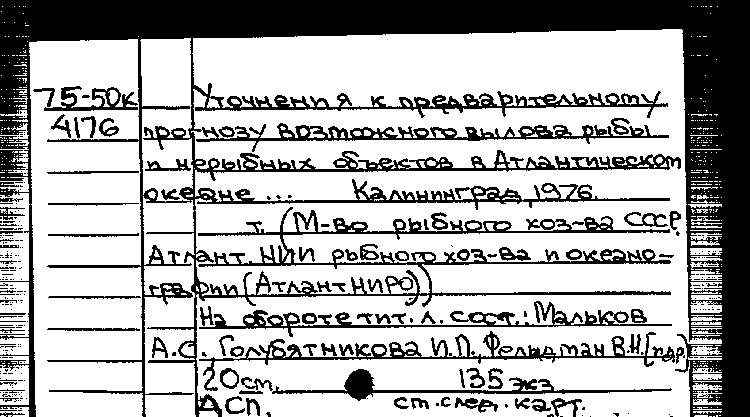 75-50к Уточнения к предварительному
4176 прогнозу возможного вылова рыбы
и нерыбных объектов в Атлантическом
океане ... Калининград, 1976.
т. (М-во рыбного хоз-ва СССР.
Атлант. НИИ рыбного хоз-ва и океано=
графии (АтлантНИРО))
На обороте тит. л. сост.: Мальков
А.С., Голубятникова И.П., Фельдман В.Н. [и др]
20 см. 135 экз
ДСП. см. след. карт.